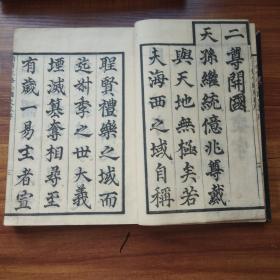 二尊開國
天孫繼統億兆尊戴
與天地無極矣若
夫海西之域自稱
聖賢禮樂之域而
迄叔季之世大義
堙滅篡奪相尋至
有歲一易主者豈